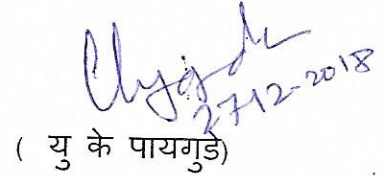 27-12-2018
( यु के पायगुडे)